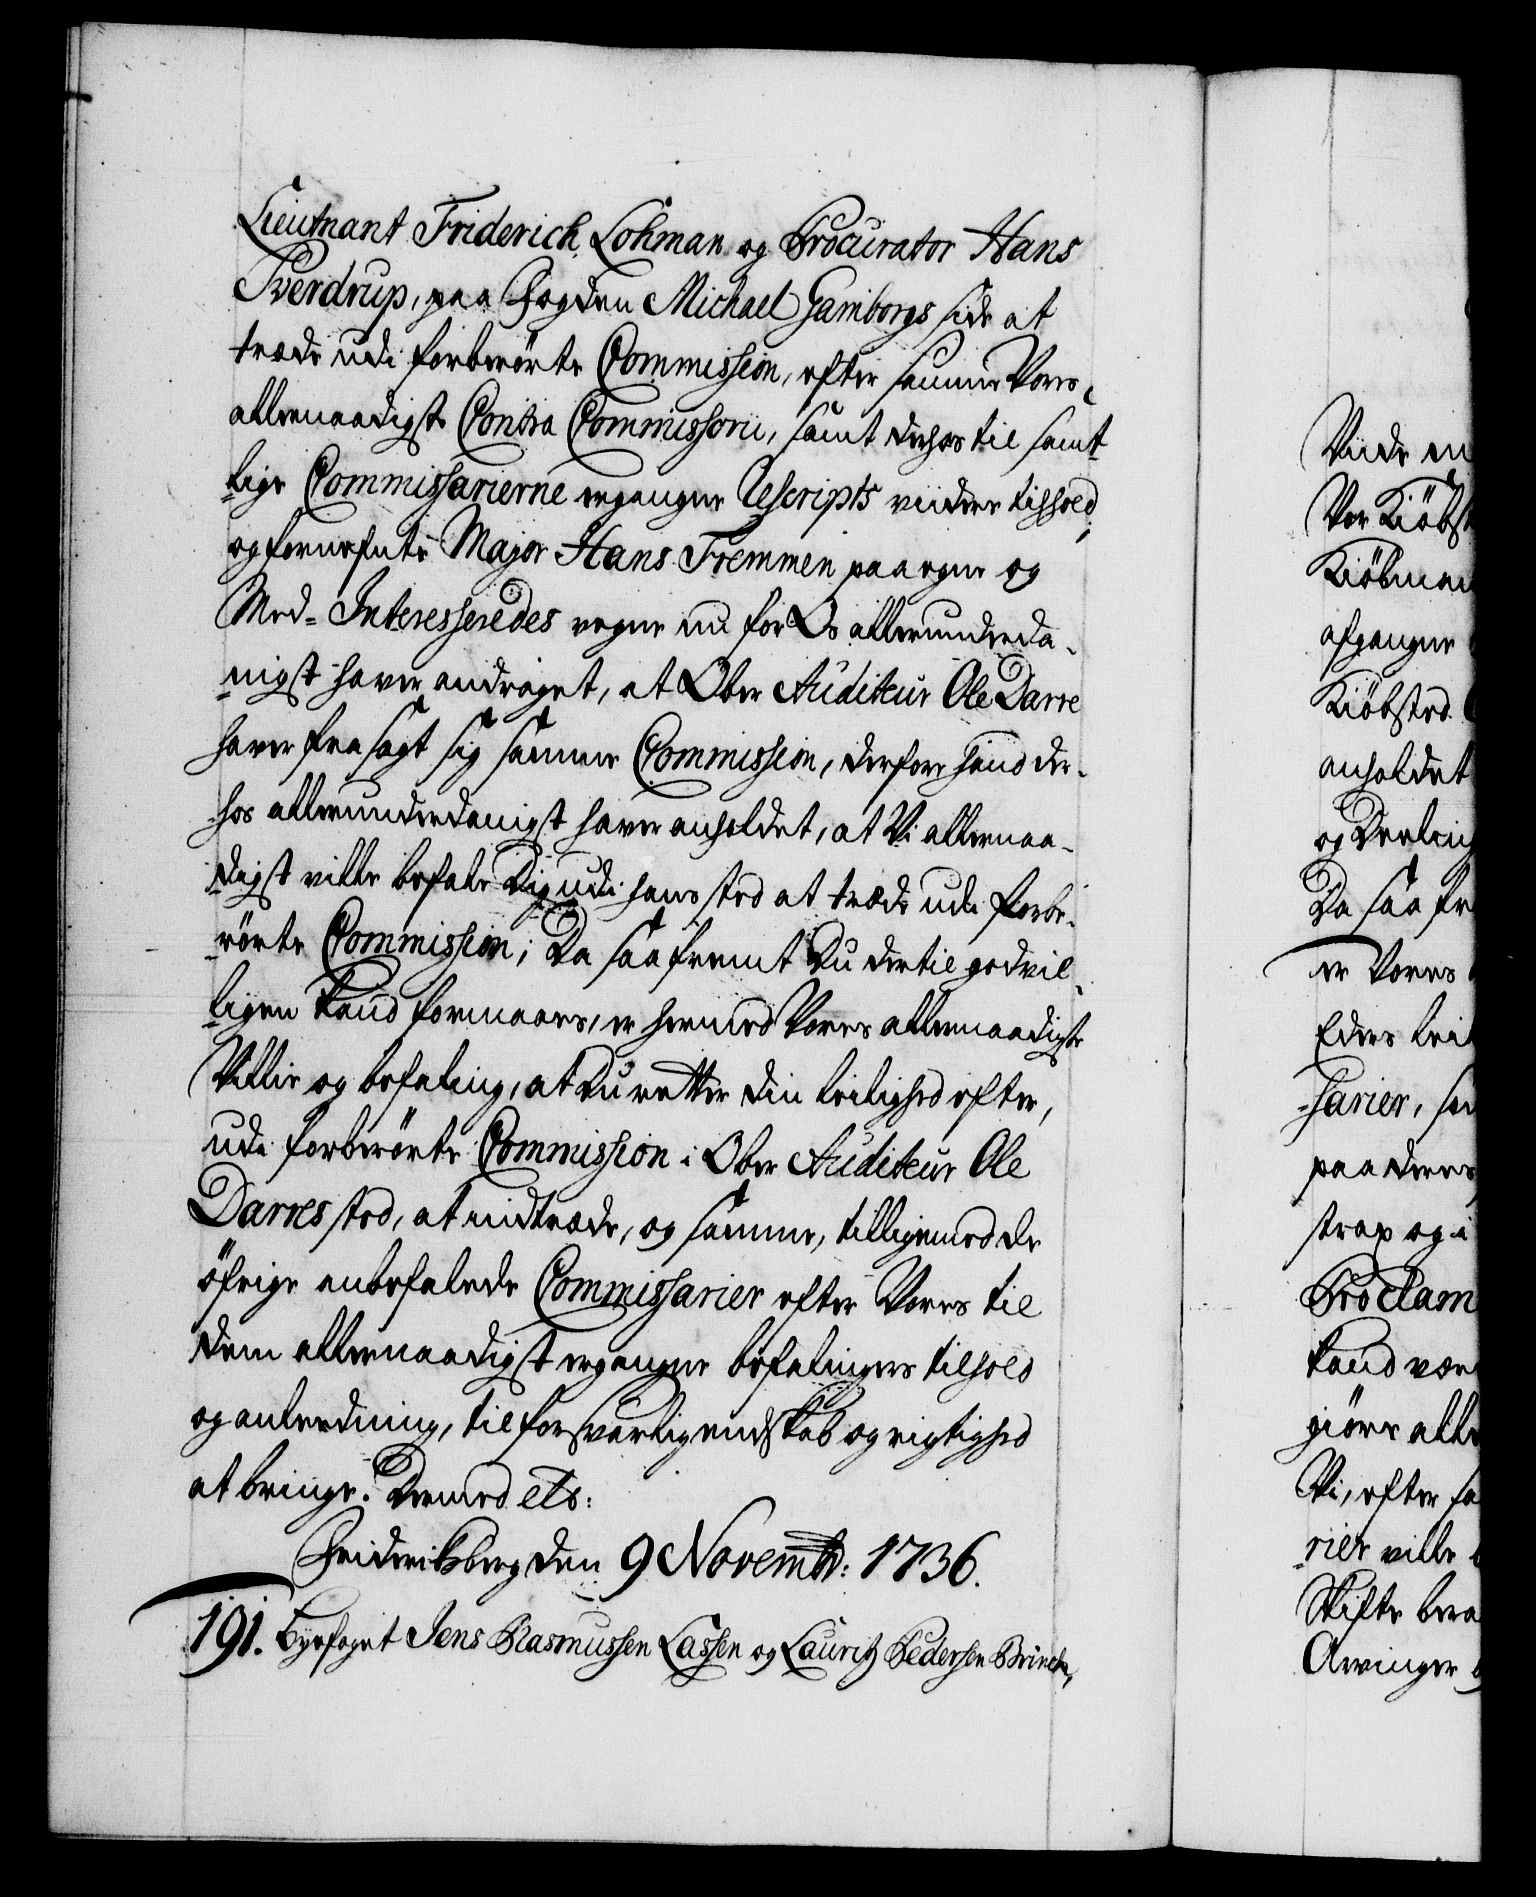 Lieutnant Friderich Lohman og Procurator Hans
Sverdrup, paa Fogden Michael Gamborgs side at
træde udi forberörte Commission, efter samme Vores
allernaadigste Contra Commissorii, samt derhos til samt-
-lige Commissarierne ergangne Rescripts viidere tilhold;
og fornefnte Major Hans Fremmen paa egne og
Med-Interesseredes vegne nu for Os allerunderda-
-nigst haver andraget, at Ober Auditeur Ole Darre
haver frasagt sig samme Commission, derfore hand der-
-hos allerunderdanigst haver anholdet, at Vi allernaa-
-digst ville befale Dig udi hans sted at træde udi forbe-
-rörte Commission; Da saafremt Du dertil godvil-
-ligen kand formaaes, er hermed Vores allernaadigste
Villie og befaling, at Du retter din leilighed efter,
udi forberörte Commission i Ober Auditeur Ole
Darres sted, at indtræde, og samme, tilligemed de
öfrige anbefalede Commissarier efter Vores til
dem allernaadigst ergangne befalingers tilhold
og anledning, til forsvarlig endskab og rigtighed
at bringe. Dermed etc:
Friderichsberg den 9 Novembr: 1736.
191. Byefoget Jens Rasmussen Lassen og Lauritz Pedersen Brinck,
Viide
Vor Kiöbst
Kiöbman
afgangne
Kiöbsted
anholdet
og Deeling
Da saa fr
er Vores
Eders leil
-sarier, sa
paa deres
strax og i
Proclam
kand vær
giöre alle
Vi, efter sa
-rier ville
Skifte
Arvinger